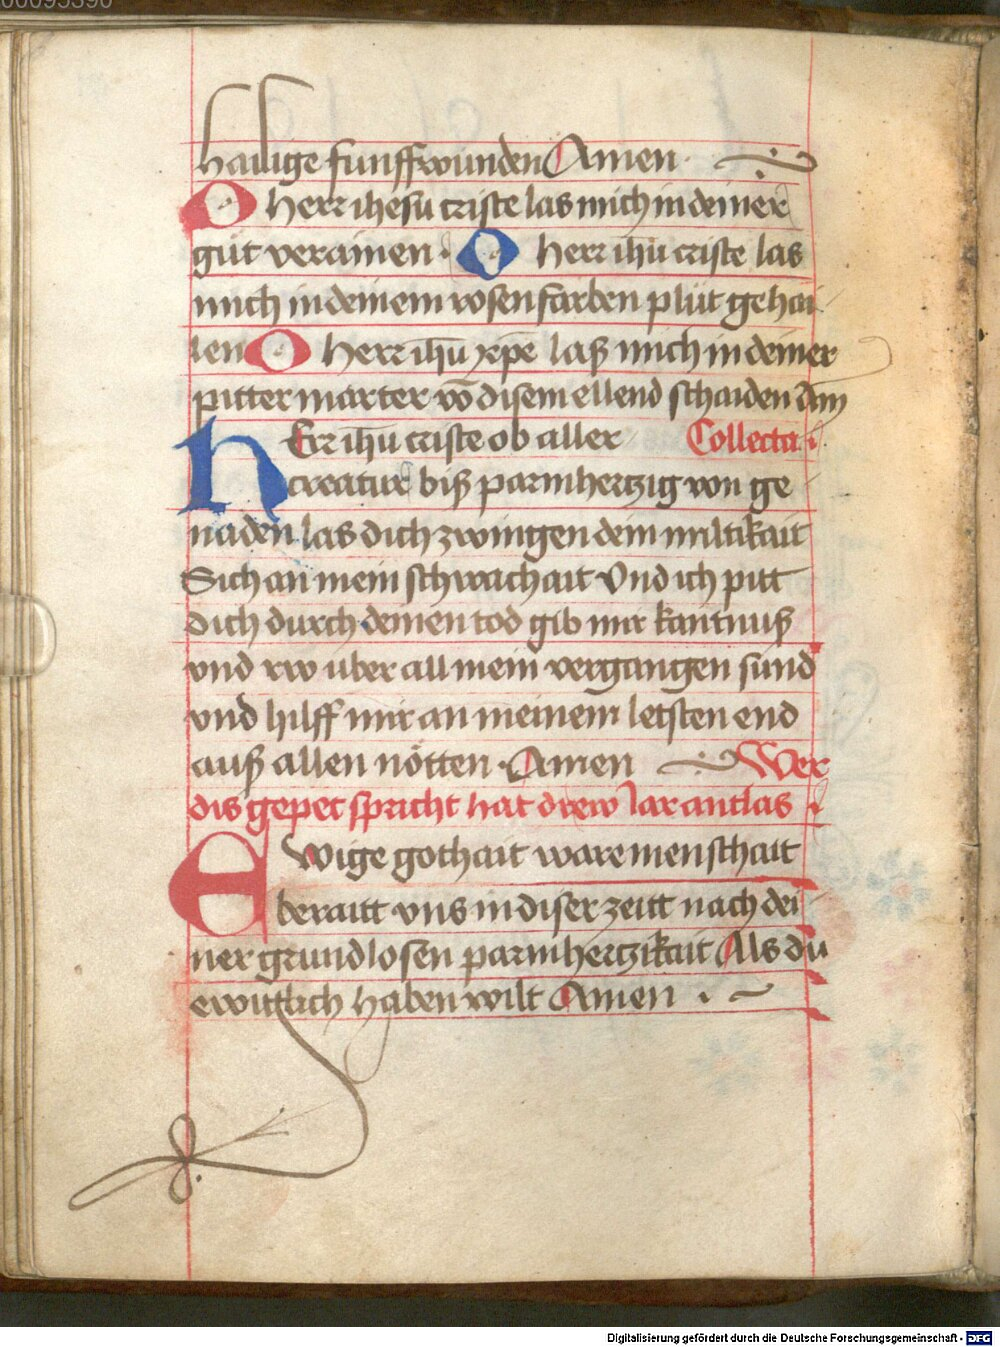 00095390
hailige funff wunden Amen
O herr ihesu criste las mich in deiner
güt verainen · O herr ihū criste las
mich in deinem rosenfarben plüt gehai
len O herr ihū xp̄e laß mich in deiner
pitter marter vō disem ellend schaiden Am
HErr ihū criste ob aller Collecta
creatur biß parmhertzig von ge
naden las dich zwingen dein miltikait
Sich an mein schwachait Vnd ich pitt
dich durch deinen tod gib mir kantnuß
vnd rw vber all mein vergangen sünd
vnd hilff mir an meinem letsten end
auß allen nötten · Amen Wer
dis gepet spricht hat drew Jar antlas
EWige gothait ware menschait
beraitt vns in diser zeitt nach dei
ner grundlosen parmhertzikait Als du
ewittlich haben wilt Amen
Digitalisierung gefördert durch die Deutsche Forschungsgemeinschaft - DFG